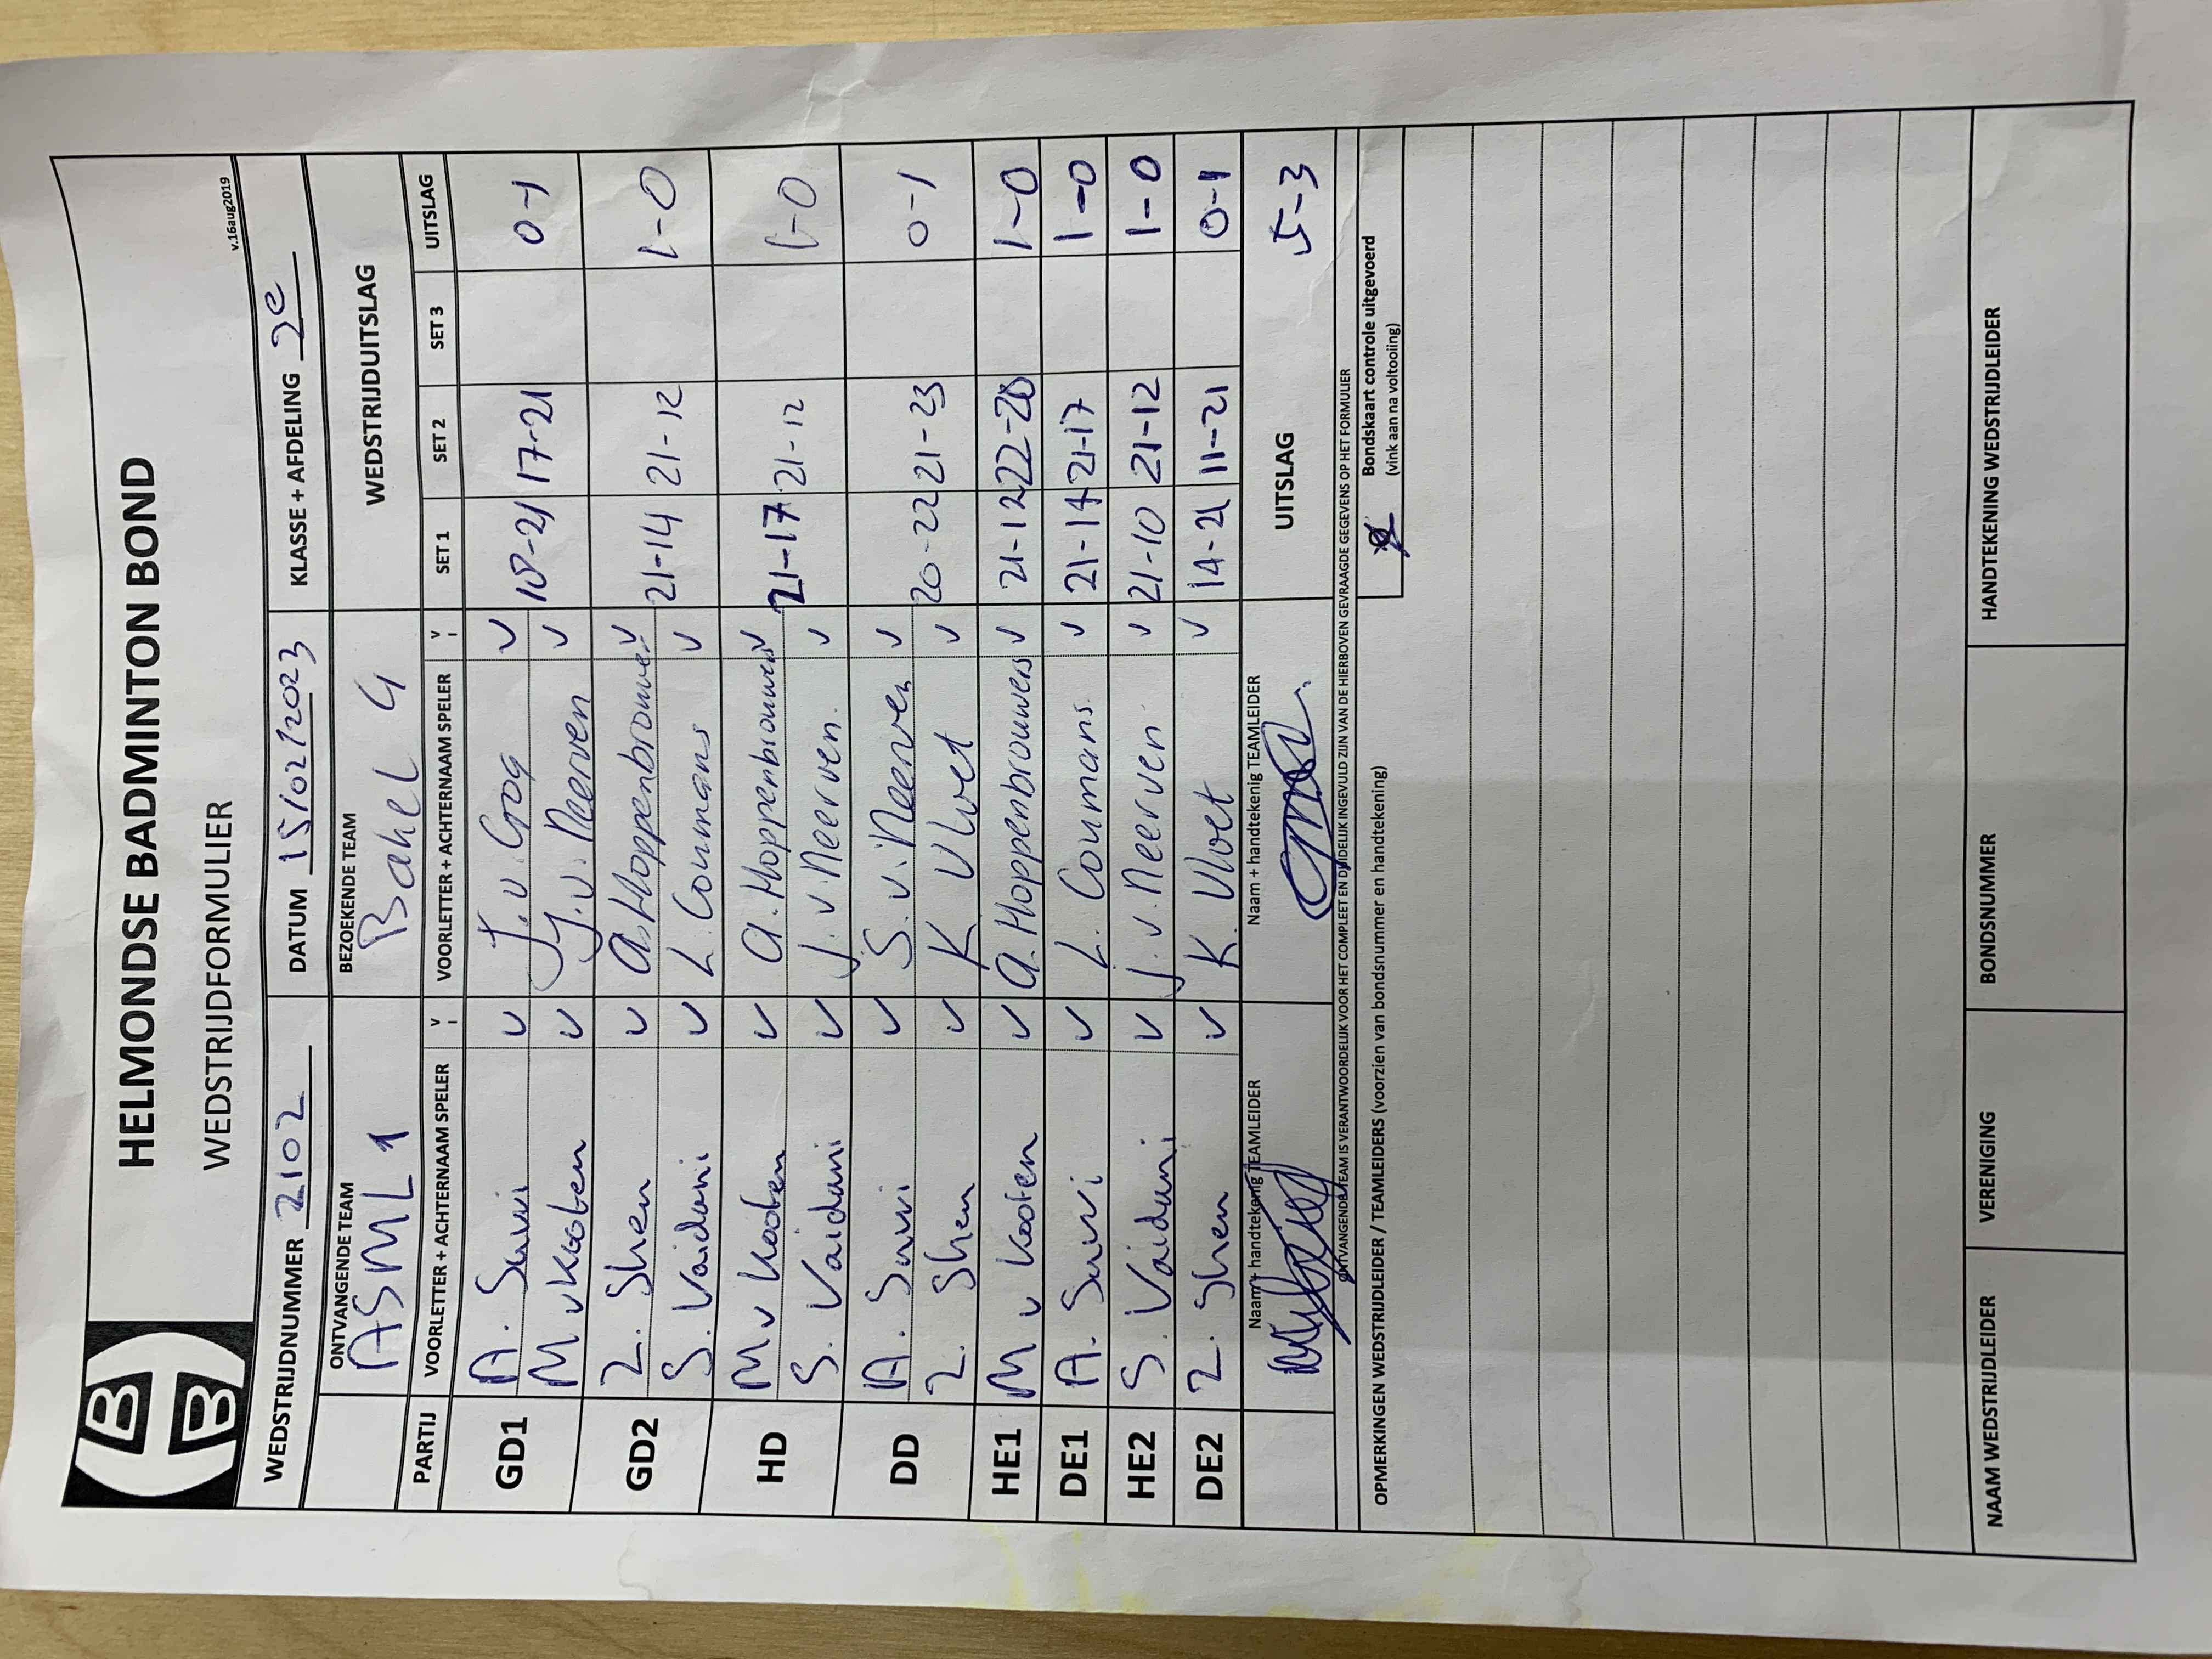 HELMONDSE BADMINTON BOND
WEDSTRIJDFORMULIER
v.16aug2019
WEDSTRIJDNUMMER 2102 DATUM 15/02/2023 KLASSE + AFDELING 2e
ONTVANGENDE TEAM BEZOEKENDE TEAM WEDSTRIJDUITSLAG
ASML 1 Bakel 4
PARTIJ VOORLETTER + ACHTERNAAM SPELER V VOORLETTER + ACHTERNAAM SPELER V SET 1 SET 2 SET 3 UITSLAG
GD1 A. v J.v. v 18-21 17-21 0-1
M v Kooten v J. v. Neerven v
GD2 Z. Shen v A. Hoppenbrouwers v 21-14 21-12 1-0
S. Vaidani v L. Coumans v
HD M v Kooten v A. Hoppenbrouwers v 21-17 21-12 1-0
S. Vaidani v J. v. Neerven. v
DD A. v S. v. Neerven v 20-22 21-23 0-1
Z. Shen v K Vloet v
HE1 M v Kooten v A. Hoppenbrouwers v 21-12 22-20 1-0
DE1 A. v L. Coumans. v 21-14 21-17 1-0
HE2 S. Vaidani v J. v. Neerven v 21-10 21-12 1-0
DE2 Z. Shen v K. Vloet v 14-21 11-21 0-1
Naam + handtekenig TEAMLEIDER Naam + handtekenig TEAMLEIDER UITSLAG 5-3
ONTVANGENDE TEAM IS VERANTWOORDELIJK VOOR HET COMPLEET EN DUIDELIJK INGEVULD ZIJN VAN DE HIERBOVEN GEVRAAGDE GEGEVENS OP HET FORMULIER
OPMERKINGEN WEDSTRIJDLEIDER / TEAMLEIDERS (voorzien van bondsnummer en handtekening) Bondskaart controle uitgevoerd
(vink aan na voltooiing)
NAAM WEDSTRIJDLEIDER VERENIGING BONDSNUMMER HANDTEKENING WEDSTRIJDLEIDER